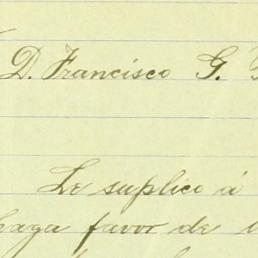 D. Francisco G.
Le suplico á
haga favor de